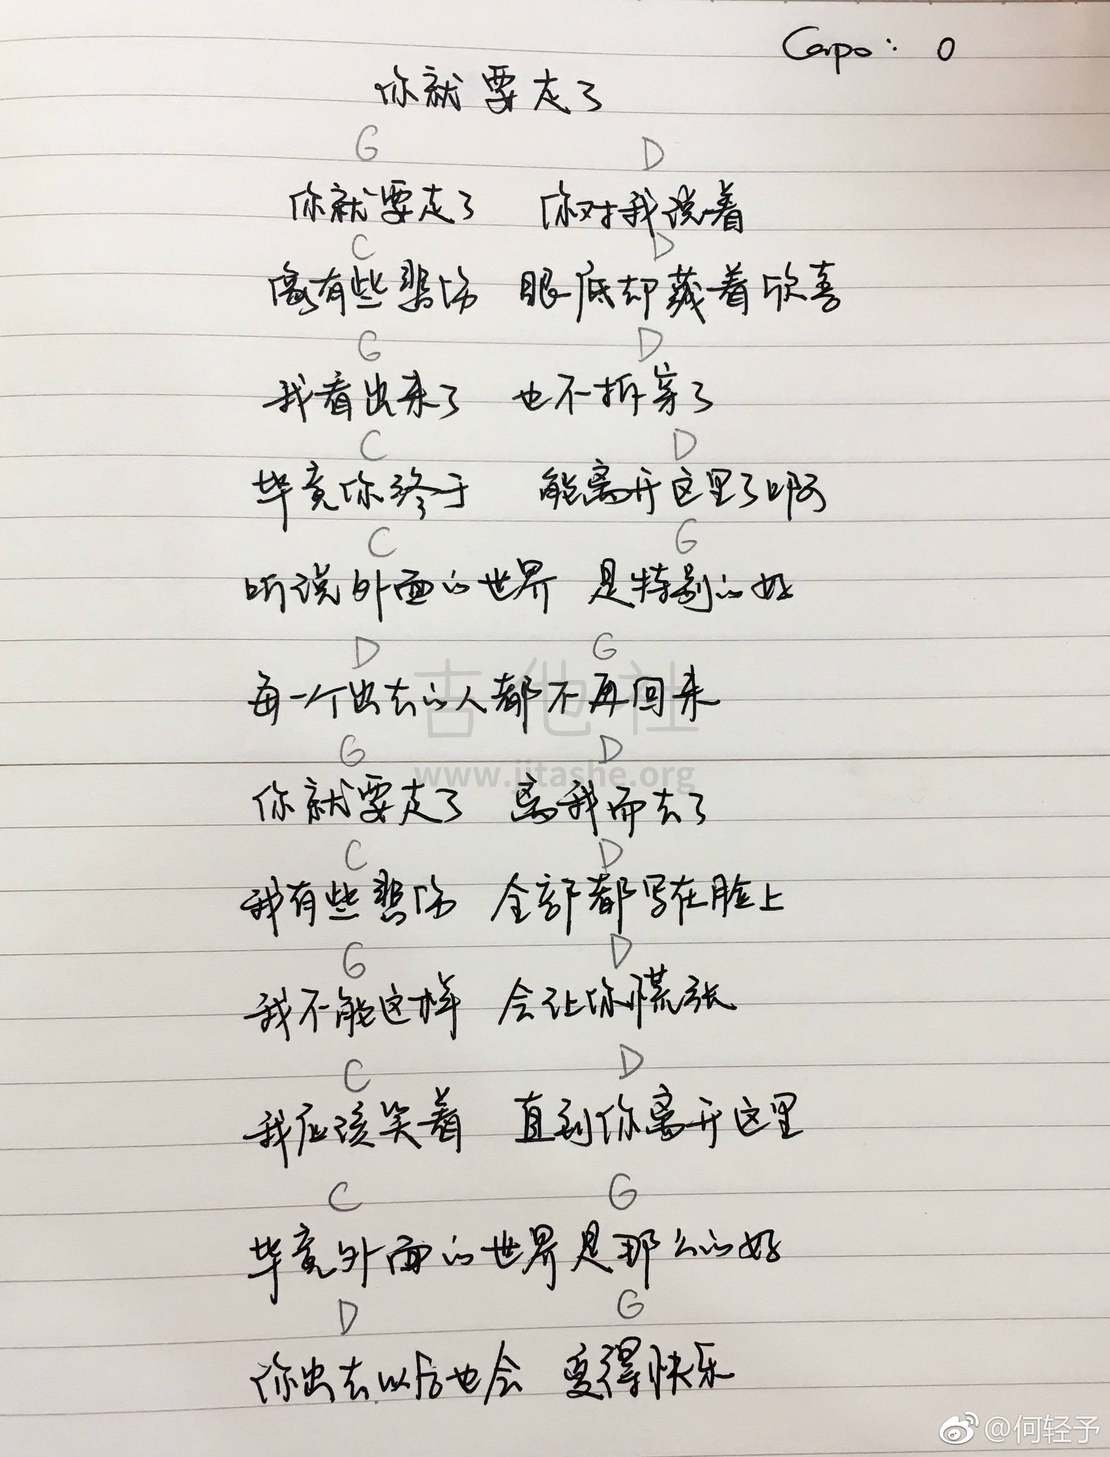 Carpo: 0
你就要走了
G D
你就要走了 你对我说着
C D
离有些悲伤 眼底却藏着欣喜
G D
我看出来了 也不拆穿了
C D
毕竟你终于 能离开这里了啊
C G
听说外面的世界 是特别的好
D G
每一个出去的人都不再回来
吉他社
www.jitashe.org
G D
你就要走了 离我而去了
C D
我有些悲伤 全部都写在脸上
G D
我不能这样 会让你慌张
C D
我应该笑着 直到你离开这里
C G
毕竟外面的世界是那么的好
D G
你出去以后也会 变得快乐
@何轻予